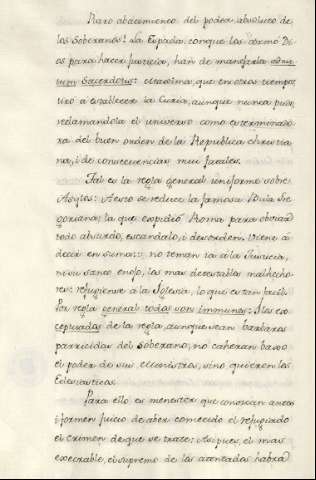 Raro abatimiento del poder absoluto de
los Soberanos! La Espada conque los armó Di
os para hacer justicia, han de manejarla
Sacerdotis: maxima, que en otros tiempos
tiró a establecer la Curia, aunque nunca pudo,
reclamandola el universo como exterminado
ra del buen orden de la Republica christia
na, i de consecuencias mui fatales.
Tal es la regla general uniforme sobre
Asylos: A esto se reduce la famosa Bula Gre
goriana, la que expidió Roma para obviar
todo absurdo, escandalo, i desorden. Viene á
decir en suma: no teman ia á la Justicia,
ni su santo enojo, los mas detestables malhecho
res: refugiense á la Iglesia, lo que es tan facil.
Por regla general todos son inmunes: I los ex
ceptuados de la regla, aunque sean barbaros
parricidas del Soberano, no caheran baxo
el poder de sus Ministros, si no quieren los
Eclesiasticos.
Para ello es menester que conozcan antes
i formen juicio de aber cometido el refugiado
el crimen de que se trate: Asi pues, el mas
execrable, el supremo de los atentados habra